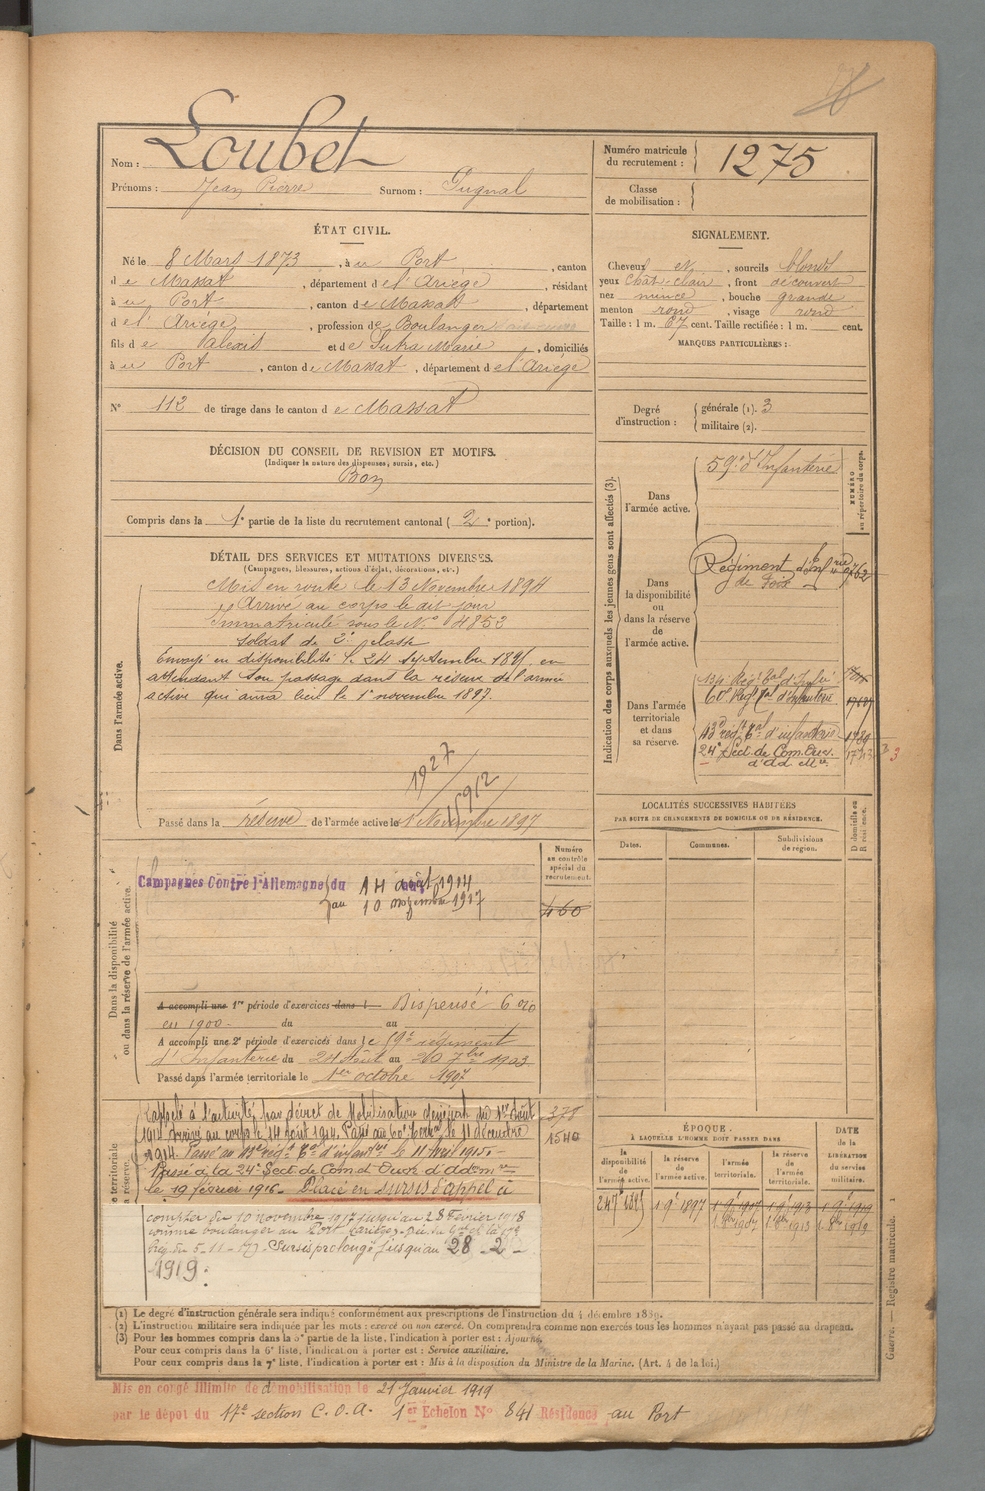 Nom : Loubet
Prénoms : Jean Pierre Surnom : Pugnal
Numéro matricule du recrutement : 1275
Classe de mobilisation :
ÉTAT CIVIL.
Né le 8 Mars 1873, à u Port, canton
de Massat, département de l'Ariège, résidant
à u Port, canton de Massat, département
de l'Ariège, profession de Boulanger
fils de Alexis et de Sutra Marie, domiciliés
à u Port, canton de Massat, département de l'Ariège
N° 112 de tirage dans le canton de Massat
SIGNALEMENT.
Cheveux et, sourcils blonds
yeux chât. clair, front découvert
nez mince, bouche grande
menton rond, visage rond
Taille : 1 m. 67 cent. Taille rectifiée : 1 m. cent.
MARQUES PARTICULIÈRES :
Degré d'instruction : générale (1). 3
militaire (2).
DÉCISION DU CONSEIL DE REVISION ET MOTIFS.
(Indiquer la nature des dispenses, sursis, etc.)
Bon
Compris dans la 1e partie de la liste du recrutement cantonal ( 2e portion).
DÉTAIL DES SERVICES ET MUTATIONS DIVERSES.
(Campagnes, blessures, actions d'éclat, décorations, etc.)
Dans l'armée active.
Mis en route le 13 Novembre 1894
Arrivé au corps le dit jour
Immatriculé sous le N° 4852
soldat de 2e classe
Envoyé en disponibilité le 24 septembre 1895 en
attendant son passage dans la réserve de l'armée
active qui aura lieu le 1er novembre 1897.
1927
1912
Passé dans la réserve de l'armée active le 1er Novembre 1897
Indication des corps auxquels les jeunes gens sont affectés (3).
NUMÉRO au répertoire du corps.
Dans l'armée active.
59e d'Infanterie
Dans la disponibilité ou dans la réserve de l'armée active.
Régiment d'Infrie
de Foix
Dans l'armée territoriale et dans sa réserve.
134 Rég. Tal d'Infie
60e Rég. Tal d'Infanterie
43e régt Tal d'infanterie
24e Sect. de Com. Ouv.
d'ad. Mre
LOCALITÉS SUCCESSIVES HABITÉES
PAR SUITE DE CHANGEMENTS DE DOMICILE OU DE RÉSIDENCE.
Dates. Communes. Subdivisions de région. D domicile ou R résidence.
Dans la disponibilité ou dans la réserve de l'armée active.
Numéro au contrôle spécial du recrutement.
Campagnes Contre l'Allemagne du 14 août 1914
au 10 novembre 1917
460
A accompli une 1re période d'exercices dans l Dispensé
en 1900 - du au
A accompli une 2e période d'exercices dans le 59e régiment
d'Infanterie du 24 Août au 20 7bre 1903
Passé dans l'armée territoriale le 1er octobre 1907
Rappelé à l'activité par décret de Mobilisation général du 1er Août
1914 Arrivé au corps le 14 août 1914. Passé au 60e Territal le 11 décembre
1914. Passé au 43e rég. Tal d'infantrie le 11 Avril 1915.
Passé à la 24e Sect. de Com et Ouvr. d'adm on
le 19 février 1916. Placé en sursis d'appel à
378
1540
compter du 10 novembre 1917 jusqu'au 28 Février 1918
comme boulanger au Port (Ariège)
Rég. du 5-11-17). Sursis prolongé jusqu'au 28 - 2 -
1919.
ÉPOQUE
À LAQUELLE L'HOMME DOIT PASSER DANS
la disponibilité de l'armée active. la réserve de l'armée active. l'armée territoriale. la réserve de l'armée territoriale.
DATE de la LIBÉRATION du service militaire.
24 7e 1895 1 9e 1897 1 9e 1907 1 9e 1913 1 9e 1919
1. 8bre 1907 1. 8bre 1913 1. 8bre 1919
(1) Le degré d'instruction générale sera indiqué conformément aux prescriptions de l'instruction du 4 décembre 1889.
(2) L'instruction militaire sera indiquée par les mots : exercé ou non exercé. On comprendra comme non exercés tous les hommes n'ayant pas passé au drapeau.
(3) Pour les hommes compris dans la 5e partie de la liste, l'indication à porter est : Ajourné.
Pour ceux compris dans la 6e liste, l'indication à porter est : Service auxiliaire.
Pour ceux compris dans la 7e liste, l'indication à porter est : Mis à la disposition du Ministre de la Marine. (Art. 4 de la loi.)
Guerre. — Registre matricule. 1
Mis en congé illimité de démobilisation le 21 Janvier 1919
par le dépôt du 17e section C. O. A. 1er Echelon N° 841 Résidence au Port